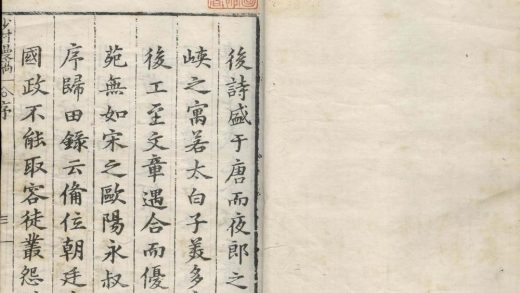 後詩盛于唐而夜郎之
峽之寓若太白子美多
後工至文章遇合而優
苑無如宋之歐陽永叔
序歸田錄云備位朝廷
國政不能取容徒叢怨
序
三